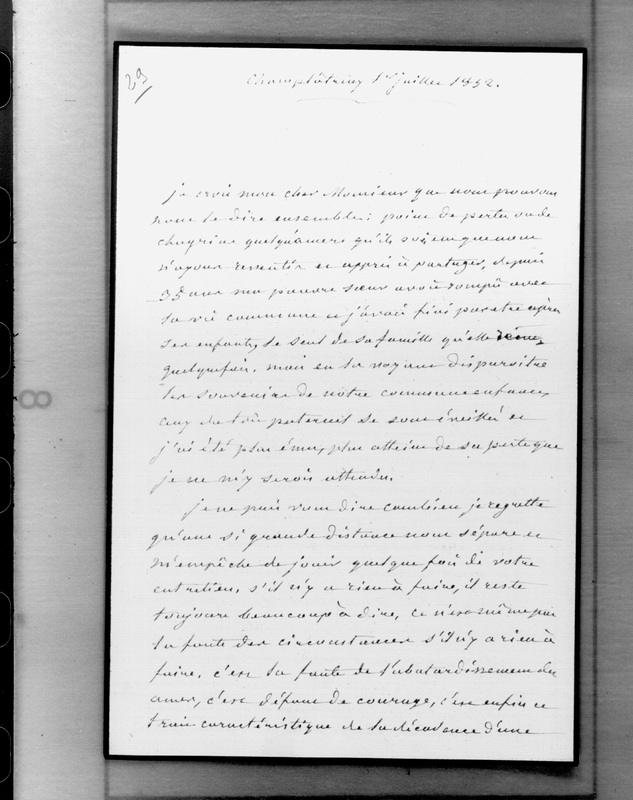 29
Champlâtreux 1er juillet 1852.
je crois mon cher Monsieur que nous pouvons
nous le dire ensemble: point de pertes ou de
chagrins quelqu'amers qu'ils soient que nous
n'ayons ressentis et appris à partager, depuis
35 ans ma pauvre sœur avoit rompu avec
la vie commune et j'avois fini par être après
ses enfants, le seul de sa famille qu'elle
quelquefois. mais en la voyant disparoitre
les souvenirs de notre commune enfance,
ceux du toit paternel se sont éveillés et
j'ai été plus ému, plus atteint de sa perte que
je ne m'y serois attendu.
je ne puis vous dire combien je regrette
qu'une si grande distance nous sépare et
m'empêche de jouir quelque fois de votre
entretien. s'il n'y a rien à faire, il reste
toujours beaucoup à dire, ce n'est même pas
la faute des circonstances s'il n'y a rien à
faire, c'est la faute de l'abatardissement des
ames, c'est défaut de courage, c'est enfin ce
trait caractéristique de la décadence d'une
8